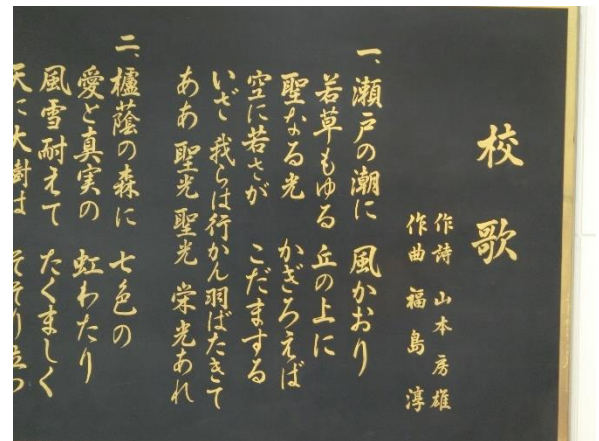 校歌
作詩 山本房雄
作曲 福島淳
一、瀬戸の潮に 風かおり
若草もゆる 丘の上に
聖なる光 かぎろえば
空に若さが こだまする
いざ我らは行かん羽ばたきて
ああ聖光聖光 栄光あれ
二、櫨蔭の森に 七色の
愛と真実の 虹わたり
風雪耐えて たくましく
天に大樹は そそり立つ